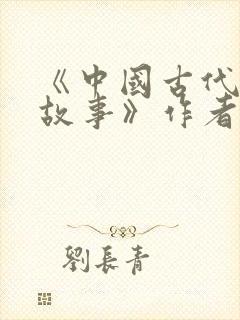 《中國古代
故事》作者
劉長青